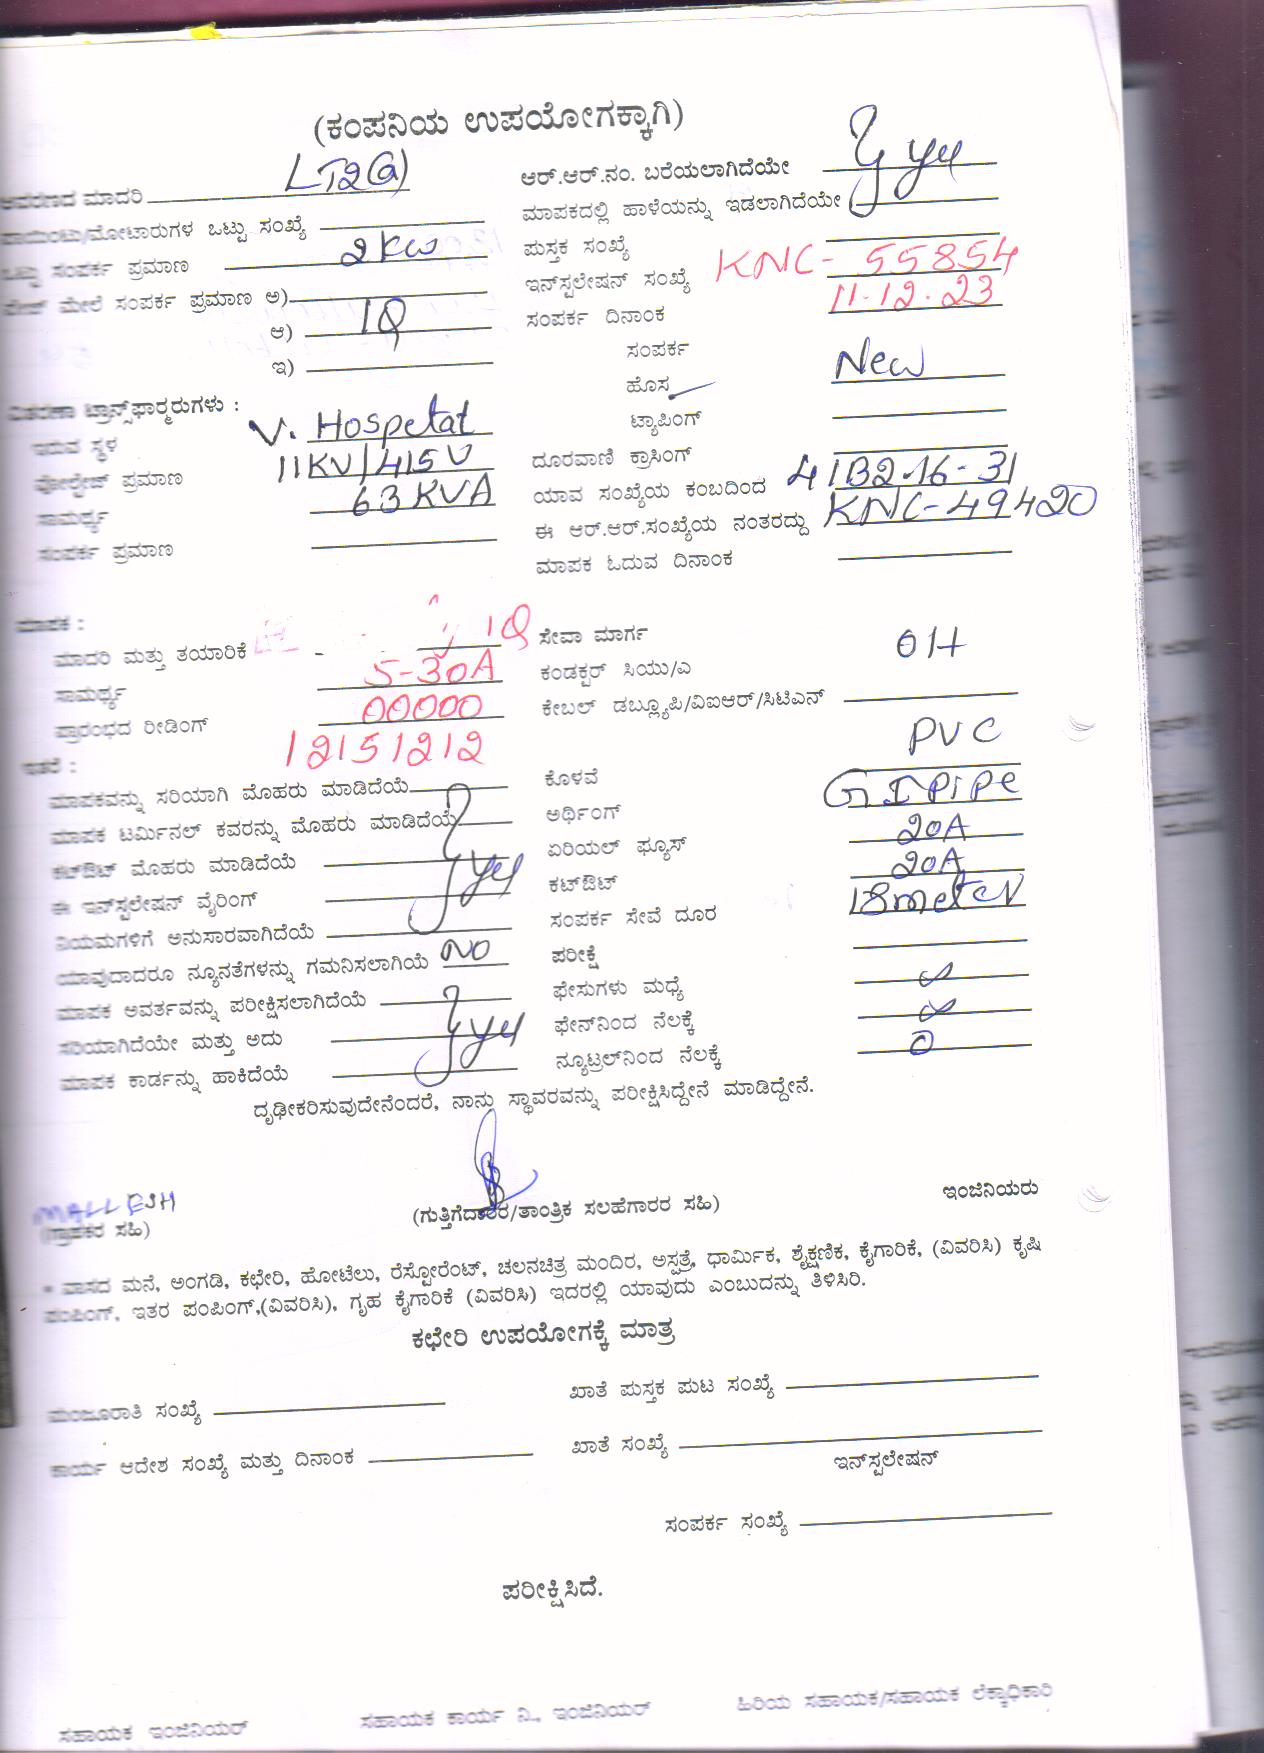 (ಕಂಪನಿಯ ಉಪಯೋಗಕ್ಕಾಗಿ)
ಆವರಣದ ಮಾದರಿ LT2(a)
ಆರ್.ಆರ್.ನಂ. ಬರೆಯಲಾಗಿದೆಯೇ
ಪಾಯಿಂಟು/ಮೋಟಾರುಗಳ ಒಟ್ಟು ಸಂಖ್ಯೆ
ಮಾಪಕದಲ್ಲಿ ಹಾಳೆಯನ್ನು ಇಡಲಾಗಿದೆಯೇ
ಒಟ್ಟು ಸಂಪರ್ಕ ಪ್ರಮಾಣ 2KW
ಪುಸ್ತಕ ಸಂಖ್ಯೆ
ಮೇಲೆ ಸಂಪರ್ಕ ಪ್ರಮಾಣ ಅ)
ಇನ್‌ಸ್ಟಲೇಷನ್ ಸಂಖ್ಯೆ KNC- 55854
ಆ)
ಸಂಪರ್ಕ ದಿನಾಂಕ 11-12-23
ಇ)
ಸಂಪರ್ಕ
ಹೊಸ New
ವಿತರಣಾ ಟ್ರಾನ್ಸ್‌ಫಾರ್ಮರುಗಳು :
ಟ್ಯಾಪಿಂಗ್
ಇರುವ ಸ್ಥಳ V. Hospetat
ದೂರವಾಣಿ ಕ್ರಾಸಿಂಗ್
ವೋಲ್ಟೇಜ್ ಪ್ರಮಾಣ 11KV/415V
ಯಾವ ಸಂಖ್ಯೆಯ ಕಂಬದಿಂದ 41B2-16-31
ಸಾಮರ್ಥ್ಯ 63KVA
ಈ ಆರ್.ಆರ್.ಸಂಖ್ಯೆಯ ನಂತರದ್ದು KNC-49420
ಸಂಪರ್ಕ ಪ್ರಮಾಣ
ಮಾಪಕ ಓದುವ ದಿನಾಂಕ
ಮಾಪಕ :
ಮಾದರಿ ಮತ್ತು ತಯಾರಿಕೆ
ಸೇವಾ ಮಾರ್ಗ
ಸಾಮರ್ಥ್ಯ 5-30A
ಕಂಡಕ್ಟರ್ ಸಿಯು/ಎ OH
ಪ್ರಾರಂಭದ ರೀಡಿಂಗ್ 00000
ಕೇಬಲ್ ಡಬ್ಲ್ಯೂಪಿ/ವಿಐಆರ್/ಸಿಟಿಎನ್
12151212
PVC
ಇತರೆ :
ಮಾಪಕವನ್ನು ಸರಿಯಾಗಿ ಮೊಹರು ಮಾಡಿದೆಯೆ
ಕೊಳವೆ GI PIPE
ಮಾಪಕ ಟರ್ಮಿನಲ್ ಕವರನ್ನು ಮೊಹರು ಮಾಡಿದೆಯೆ
ಅರ್ಥಿಂಗ್ 20A
ಕಟ್‌ಔಟ್ ಮೊಹರು ಮಾಡಿದೆಯೆ
ಏರಿಯಲ್ ಫ್ಯೂಸ್ 20A
ಈ ಇನ್‌ಸ್ಟಲೇಷನ್ ವೈರಿಂಗ್
ಕಟ್‌ಔಟ್ 18meter
ನಿಯಮಗಳಿಗೆ ಅನುಸಾರವಾಗಿದೆಯೆ
ಸಂಪರ್ಕ ಸೇವೆ ದೂರ
ಯಾವುದಾದರೂ ನ್ಯೂನತೆಗಳನ್ನು ಗಮನಿಸಲಾಗಿಯೆ NO
ಪರೀಕ್ಷೆ
ಮಾಪಕ ಅವರ್ತವನ್ನು ಪರೀಕ್ಷಿಸಲಾಗಿದೆಯೆ
ಫೇಸುಗಳು ಮಧ್ಯೆ
ಸರಿಯಾಗಿದೆಯೇ ಮತ್ತು ಅದು
ಫೇಸ್‌ನಿಂದ ನೆಲಕ್ಕೆ
ಮಾಪಕ ಕಾರ್ಡನ್ನು ಹಾಕಿದೆಯೆ
ನ್ಯೂಟ್ರಲ್‌ನಿಂದ ನೆಲಕ್ಕೆ 0
ದೃಢೀಕರಿಸುವುದೇನೆಂದರೆ, ನಾನು ಸ್ಥಾವರವನ್ನು ಪರೀಕ್ಷಿಸಿದ್ದೇನೆ ಮಾಡಿದ್ದೇನೆ.
MALLESH
(ಗ್ರಾಹಕರ ಸಹಿ)
(ಗುತ್ತಿಗೆದಾರರ/ತಾಂತ್ರಿಕ ಸಲಹೆಗಾರರ ಸಹಿ)
ಇಂಜಿನಿಯರು
* ವಾಸದ ಮನೆ, ಅಂಗಡಿ, ಕಛೇರಿ, ಹೋಟೆಲು, ರೆಸ್ಟೋರೆಂಟ್, ಚಲನಚಿತ್ರ ಮಂದಿರ, ಅಸ್ಪತ್ರೆ, ಧಾರ್ಮಿಕ, ಶೈಕ್ಷಣಿಕ, ಕೈಗಾರಿಕೆ, (ವಿವರಿಸಿ) ಕೃಷಿ
ಪಂಪಿಂಗ್, ಇತರ ಪಂಪಿಂಗ್,(ವಿವರಿಸಿ), ಗೃಹ ಕೈಗಾರಿಕೆ (ವಿವರಿಸಿ) ಇದರಲ್ಲಿ ಯಾವುದು ಎಂಬುದನ್ನು ತಿಳಿಸಿರಿ.
ಕಛೇರಿ ಉಪಯೋಗಕ್ಕೆ ಮಾತ್ರ
ಮಂಜೂರಾತಿ ಸಂಖ್ಯೆ
ಖಾತೆ ಪುಸ್ತಕ ಪುಟ ಸಂಖ್ಯೆ
ಕಾರ್ಯ ಆದೇಶ ಸಂಖ್ಯೆ ಮತ್ತು ದಿನಾಂಕ
ಖಾತೆ ಸಂಖ್ಯೆ
ಇನ್‌ಸ್ಟಲೇಷನ್
ಸಂಪರ್ಕ ಸಂಖ್ಯೆ
ಪರೀಕ್ಷಿಸಿದೆ.
ಸಹಾಯಕ ಇಂಜಿನಿಯರ್
ಸಹಾಯಕ ಕಾರ್ಯ ನಿ., ಇಂಜಿನಿಯರ್
ಹಿರಿಯ ಸಹಾಯಕ/ಸಹಾಯಕ ಲೆಕ್ಕಾಧಿಕಾರಿ